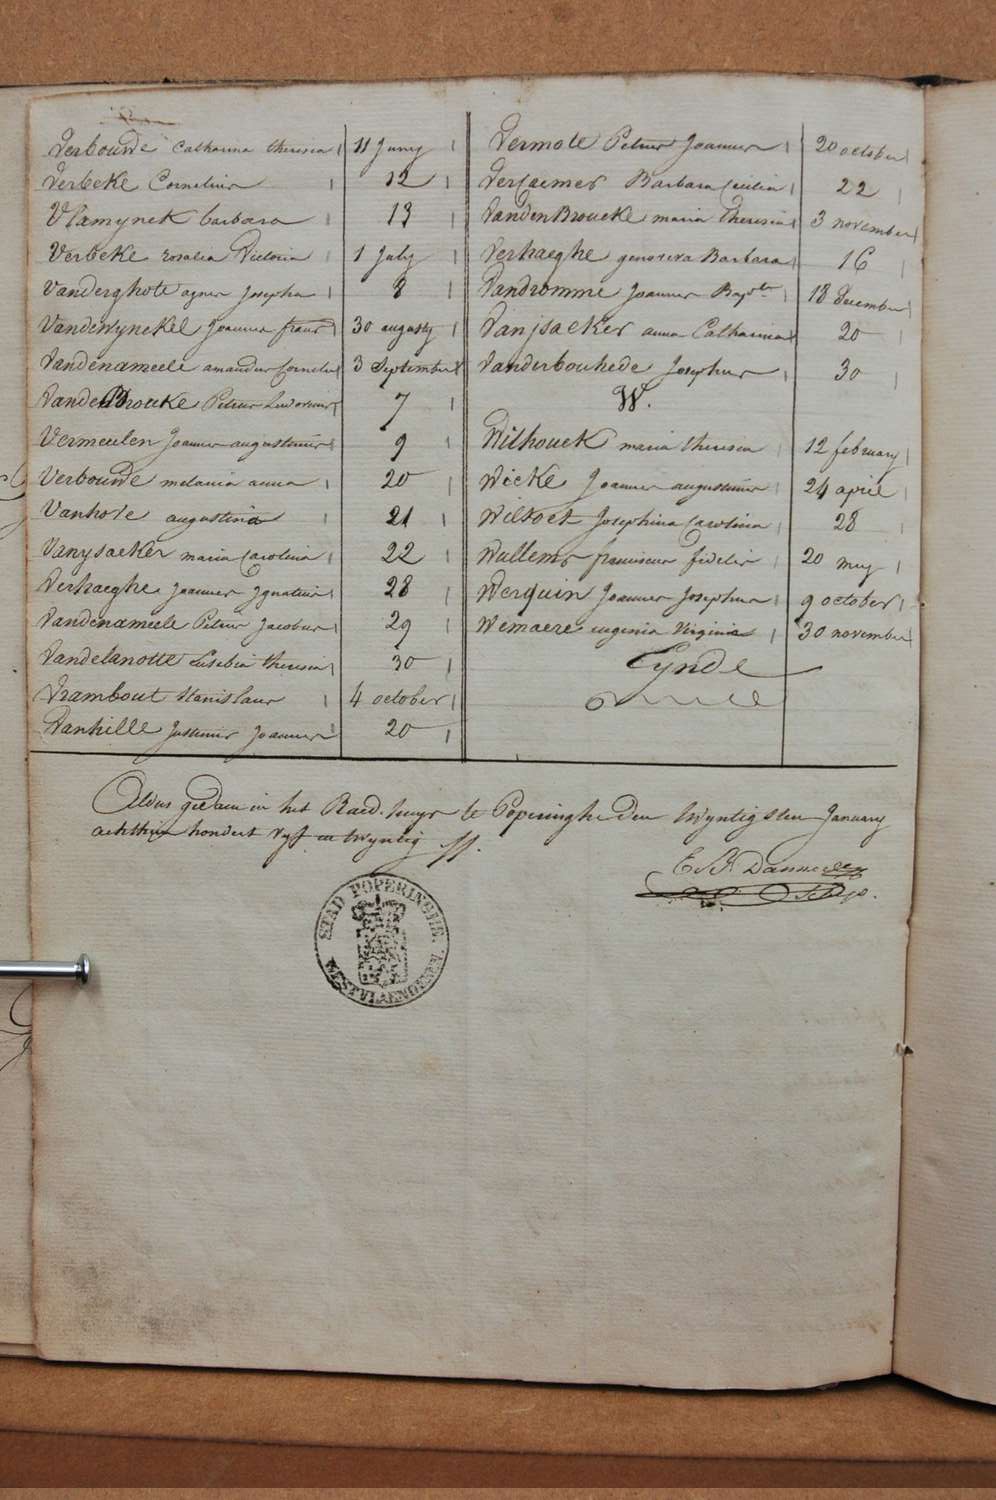 Verbouwde Catharina theresia 11 Juny
Verbeke Cornelius 12
Vlamynck barbara 13
Verbeke rosalia Victoria 1 July
Vanderghote agnes Josepha 8
Vandewynckel Joannes frans 30 augusty
Vandenameele amandus Cornelis 3 September
VandenBrouke Petrus Ludovicus 7
Vermeulen Joannes augustinus 9
Verbouwde melania anna 20
Vanhove augustina 21
Vanysacker maria Carolina 22
Verhaeghe Joannes Ignatius 28
Vandenameele Petrus Jacobus 29
Vandelanotte Eusebia theresia 30
Vrambout Stanislaus 4 october
Vanhille Justinus Joannes 20
Vermote Petrus Joannes 20 october
Vercaemer Barbara Cecilia 22
VandenBroucke maria theresia 3 november
Verhaeghe genoveva Barbara 16
Vandromme Joannes Bapte 18 december
Vanjsacker anna Catharina 20
Vanderbouhede Josephus 30
W.
Wilhouck maria theresia 12 february
Wicke Joannes augustinus 24 april
Wiltoct Josephina Carolina 28
Wullems franciscus fidelis 20 mey
Werquin Joannes Josephus 9 october
Wemaere eugenia Virginia 30 november
Eynde
Aldus gedaen in het Raed-huys te Poperinghe den twyntigsten January
achthien hondert vyf en twyntig
STAD POPERINGHE.
WESTVLAENDEREN.